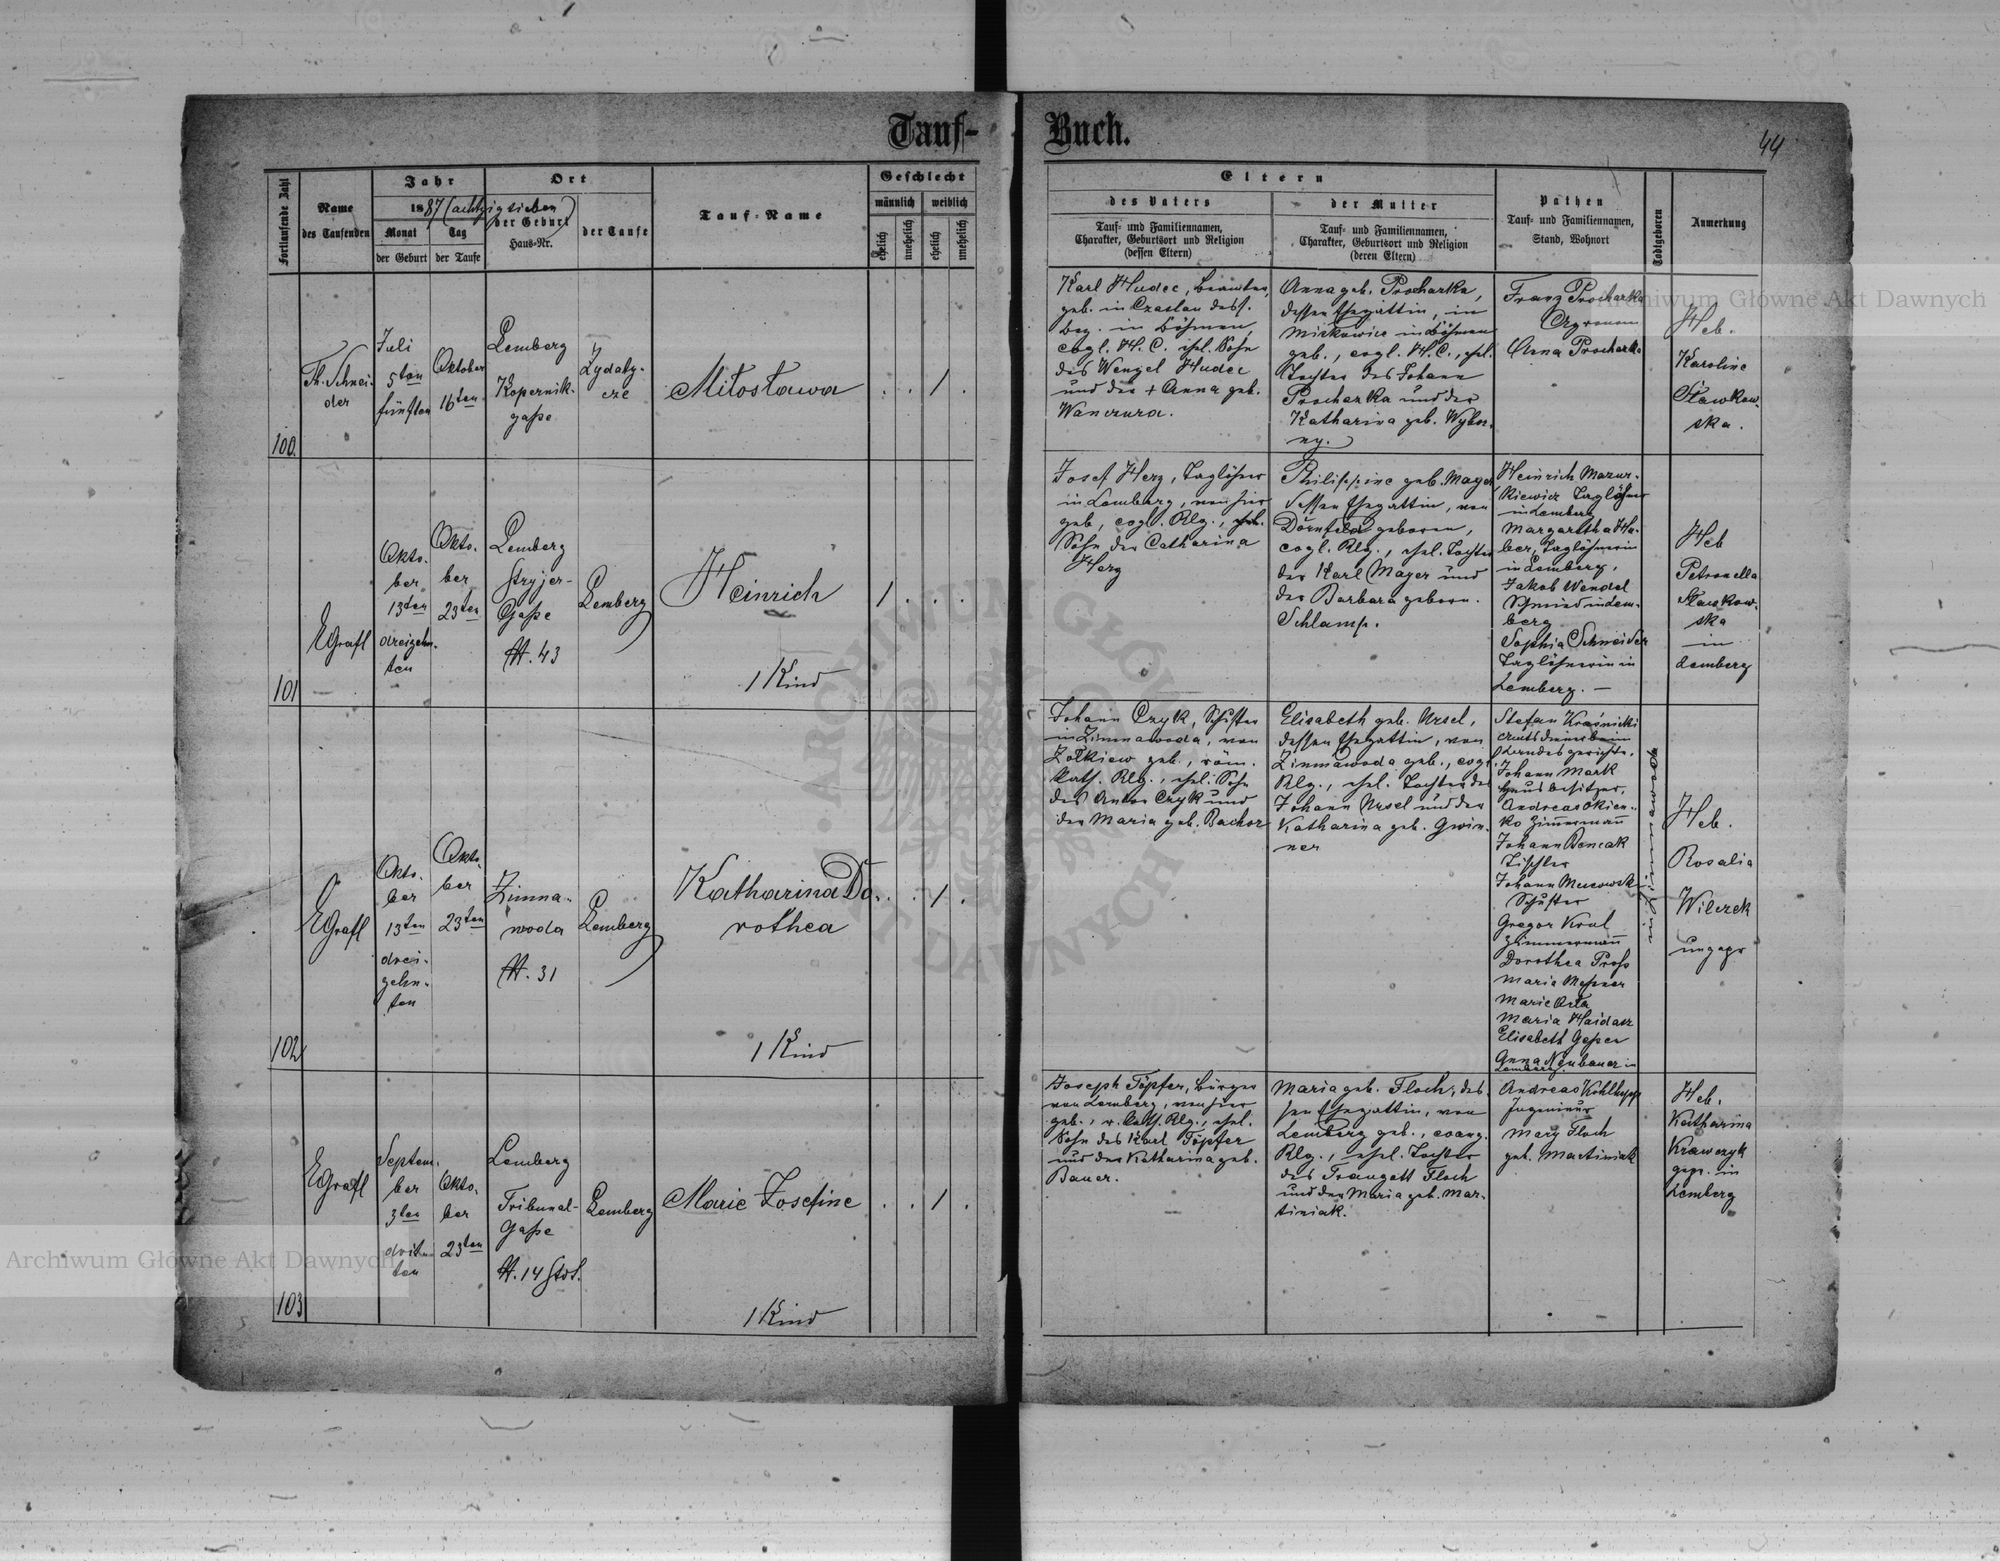 Tauf-
Buch.
44
Fortlaufende Zahl
Name
des Taufenden
Jahr
1887 (achtzigsieben)
Monat
Tag
der Geburt
der Taufe
Ort
der Geburt
Haus-Nr.
der Taufe
Tauf-Name
Geschlecht
männlich
weiblich
ehelich
unehelich
ehelich
unehelich
Eltern
des Vaters
Tauf- und Familiennamen,
Charakter, Geburtsort und Religion
(dessen Eltern)
der Mutter
Tauf- und Familiennamen,
Charakter, Geburtsort und Religion
(deren Eltern)
Pathen
Tauf- und Familiennamen,
Stand, Wohnort
Todtgeboren
Anmerkung
100.
Th. Schnei-
der
Juli
5ten
fünften
Oktober
16ten
Lemberg
Kopernik-
gaße
Zydaty-
cze
Miłosława
. . 1 .
Karl Hudec, Beamter,
geb. in Czaslau
Bez. in Böhmen,
evgl. H. C. ehel. Sohn
des Wenzel Hudec
und der + Anna geb.
Wanczura.
Anna geb. Procharka,
dessen Ehegattin, in
Mirkowice in Böhmen
geb., evgl. H. C., ehel.
Tochter des Johann
Procharka und der
Katharina geb. Wybor-
ny.
Franz Procharka
Anna Procharka
Heb.
Karoline
Sławkow-
ska.
101
EGrafl
Okto-
ber
13ten
dreizehn-
ten
Okto-
ber
23ten
Lemberg
Stryjer-
Gaße
N. 43
Lemberg
Heinrich
1 Kind
1 . . .
Josef Herz, Taglöhner
in Lemberg, von hier
geb., evgl. Rlg., ehel.
Sohn der Catharina
Herz
Philippine geb. Mayer
dessen Ehegattin, von
Dörnfeld geboren,
evgl. Rlg., ehel. Tochter
des Karl Mayer und
der Barbara geborn.
Schlamp.
Heinrich Mazur-
kiewicz Taglöhner
in Lemberg
Margaretha Hu-
ber, Taglöhnerin
in Lemberg,
Jakob Wendel
Schmied in Lem-
berg
Sophia Schneider
Taglöhnerin in
Lemberg. —
Heb
Petronella
Sławkow-
ska
in
Lemberg
102
EGrafl
Okto-
ber
13ten
drei-
zehn-
ten
Okto-
ber
23ten
Zimna-
woda
N. 31
Lemberg
Katharina Do-
rothea
1 Kind
. . 1 .
Johann Czyk, Schuster
in Zimnawoda, von
Zołkiew geb., röm.
kath. Rlg., ehel. Sohn
des Anton Czyk und
der Maria geb. Bachor
Elisabeth geb. Ursel,
dessen Ehegattin, von
Zimnawoda geb., evgl.
Rlg., ehel. Tochter des
Johann Ursel und der
Katharina geb. Gwin-
ner
Stefan Kraśnicki
Amtsdiener beim
Landesgerichte.
Johann Mark
Hausbesitzer,
Andreas
Zimmermann
Johann Bencak
Tischler
Johann
Schuster
Gregor Kral
Zimmermann
Dorothea Proß
Maria Meßner
Marie
Maria Haidan
Elisabeth Geßer
Anna Neubauer in
Lemberg.
in Zimnawoda
Heb.
Rosalia
Wilczek
ungepr
103
EGrafl
Septem-
ber
3ten
drit-
ten
Okto-
ber
23ten
Lemberg
Tribunal-
Gaße
N. 14 Stdt.
Lemberg
Marie Josefine
1 Kind
. . 1 .
Joseph Töpfer, Bürger
von Lemberg, von hier
geb., r. kath. Rlg., ehel.
Sohn des Karl Töpfer
und der Katharina geb.
Bauer.
Maria geb. Floch, des-
sen Ehegattin, von
Lemberg geb., evang.
Rlg., ehel. Tochter
des Traugott Floch
und der Maria geb. Mar-
tiniak.
Andreas Kohlhepp
Ingenieur
Mary Floch
geb. Martiniak
Heb.
Katharina
Krawczyk
gepr. in
Lemberg
Archiwum Główne Akt Dawnych
Archiwum Główne Akt Dawnych